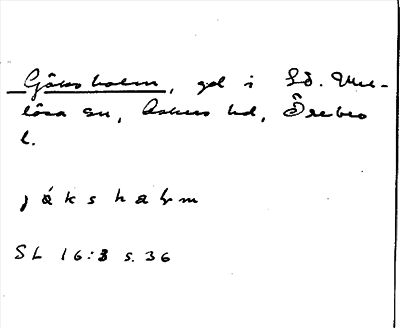 Göksholm, gd i Lö. Mel-
lösa sn, Askers hd, Örebro
l.
jákshalm
SL 16:3 s. 36